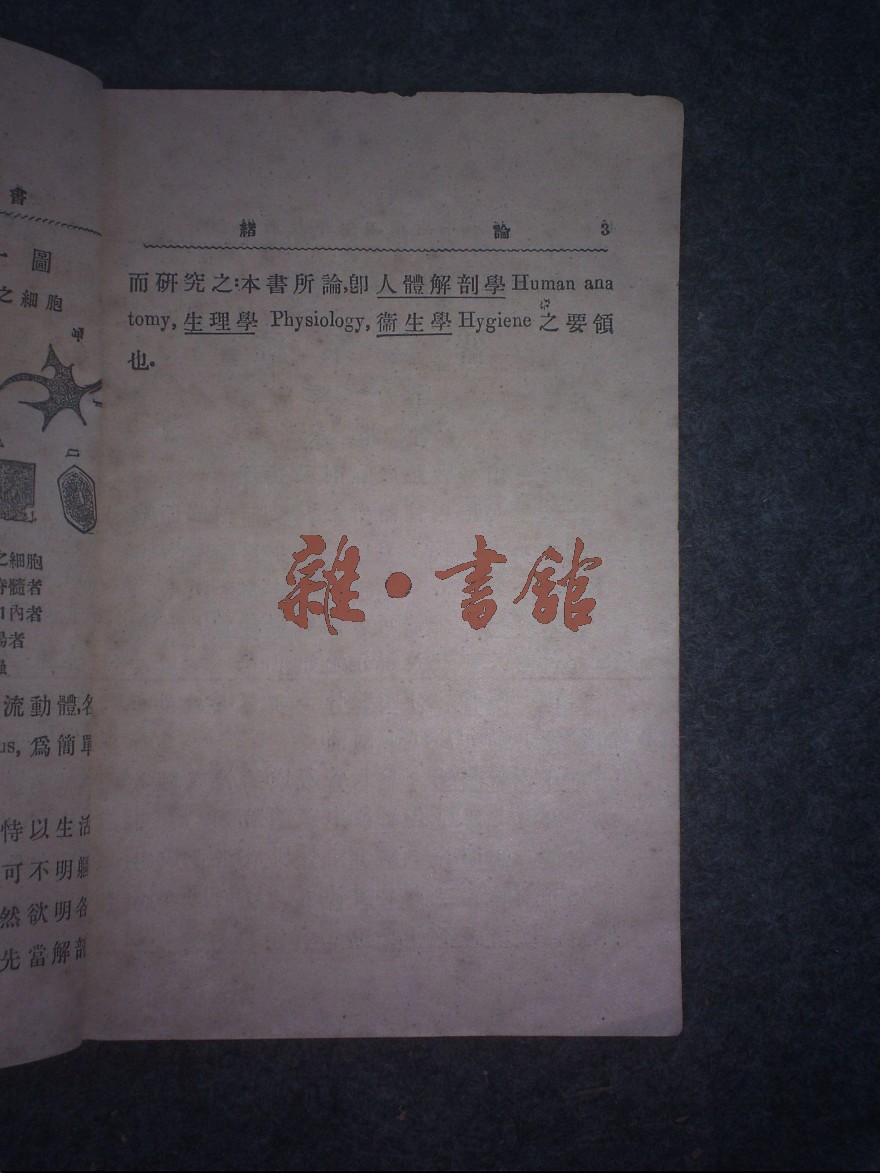 書
圖
之細胞
之細胞
脊髓者
口內者
腸者
蟲
流動體,名
us, 爲簡單
恃以生活
可不明軀
然欲明各
先當解剖
緒論 3
而研究之:本書所論,卽人體解剖學 Human ana
tomy, 生理學 Physiology, 衞生學 Hygiene 之要領
也.
雜·書館